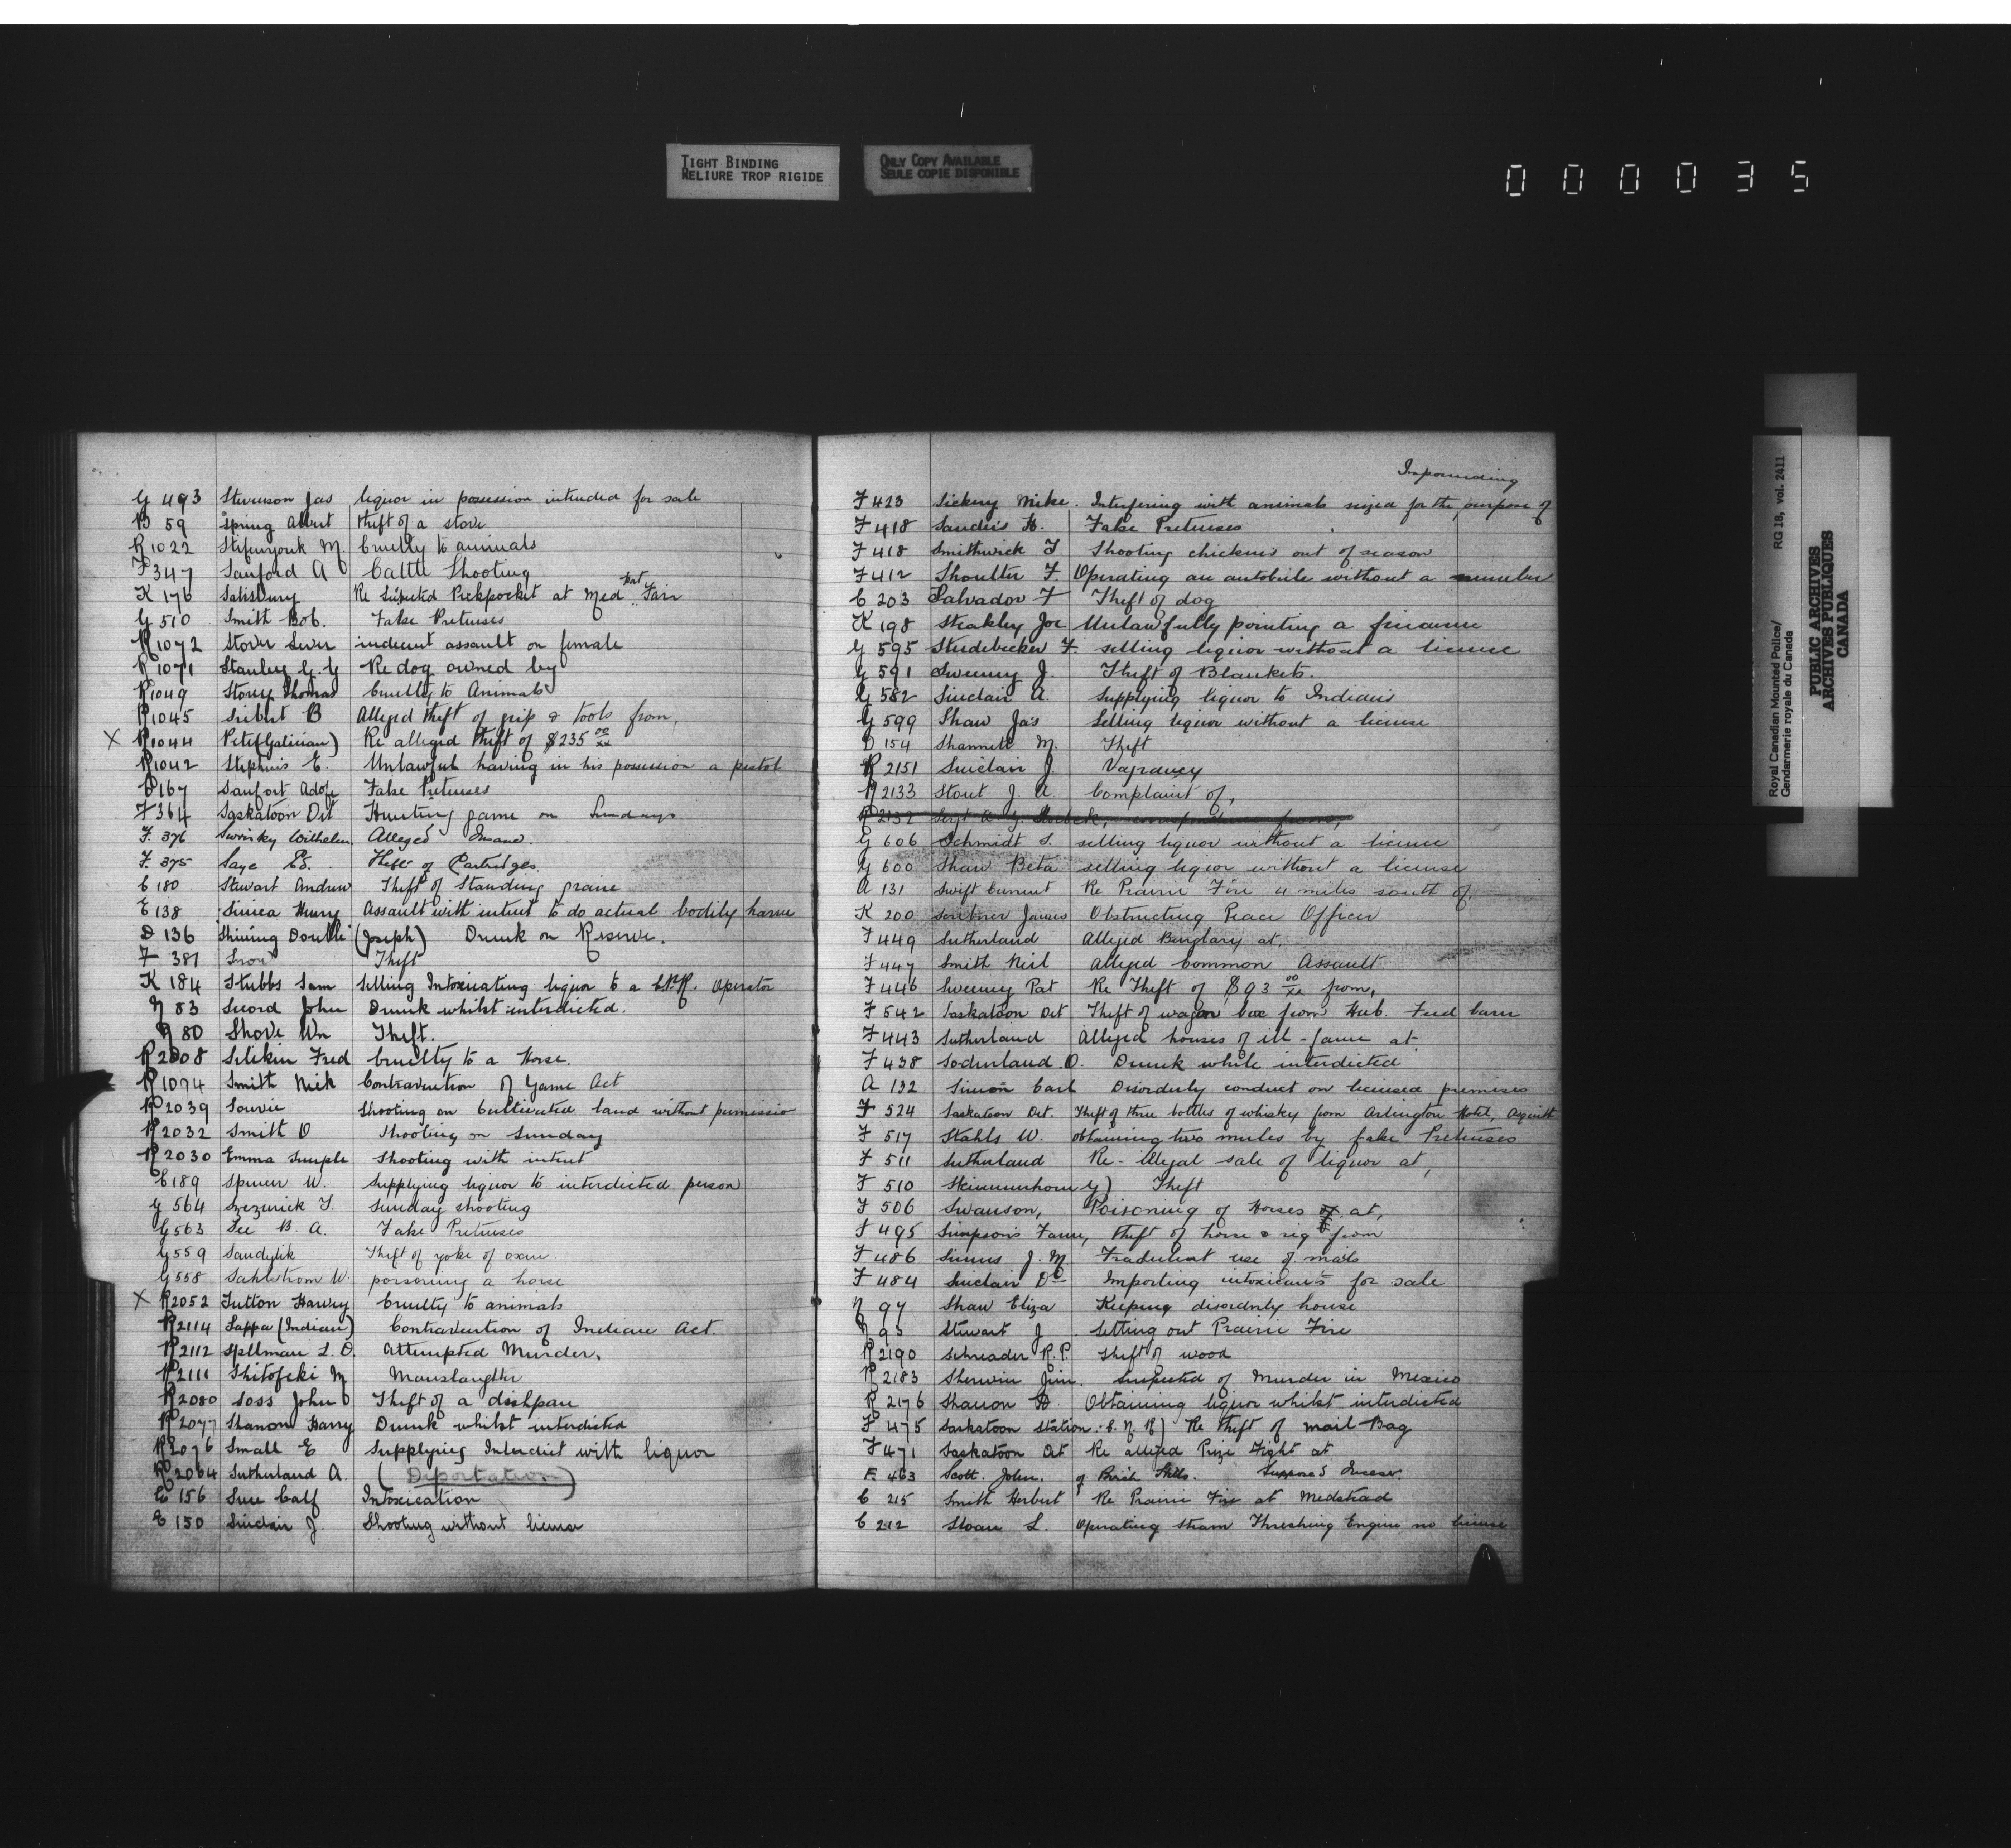 TIGHT BINDING
RELIURE TROP RIGIDE
ONLY COPY AVAILABLE
SEULE COPIE DISPONIBLE
000035
G 493 Stevenson Jas liquor in possession intended for sale
B 59 Spring Albert theft of a stove
R 1022 M. Cruelty to animals
F 347 Sanford A Cattle Shooting
K 176 Salisbury Re Suspected Pickpocket at Med Hat Fair
G 510 Smith Bob. False Pretenses
R 1072 Stover indecent assault on female
R 1071 Stanley G. G Re dog owned by
R 1049 Story Thomas Cruelty to Animals
R 1045 Seibert B Alleged theft of grip & tools from,
X R 1044 Pete (Galician) Re alleged theft of $235 00/xx
R 1042 Stephens E. Unlawful having in his possession a pistol
167 Sanfort False Pretenses
F 364 Saskatoon Det Hunting game on Sundays
F. 376 Wilhelm. Alleged Insane.
F. 375 Saye Ed. Theft of Partridges.
C 180 Stewart Andrew Theft of Standing prairie
E 138 Henry Assault with intent to do actual bodily harm
D 136 Shining Double (Joseph) Drunk on Reserve.
F 381 Theft
K 184 Stubbs Sam Selling Intoxicating liquor to a C.P.R. Operator
N 83 Secord John Drunk whilst interdicted.
N 80 Shove Wm Theft.
R 2008 Selikin Fred Cruelty to a Horse.
R 1094 Smith Nick Contravention of Game Act
R 2039 Sourie Shooting on Cultivated land without permissio
R 2032 Smith O Shooting on Sunday
R 2030 Emma Semple Shooting with intent
C 189 W. Supplying liquor to interdicted person
G 564 Sunday shooting
G 563 See B. A. False Pretenses
G 559 Sandylik Theft of yoke of oxen
G 558 Sahlstrom W. poisoning a horse
X R 2052 Sutton Harvey Cruelty to animals
R 2114 Sappa (Indian) Contravention of Indian Act.
R 2112 Spllman L. O. Attempted Murder.
R 2111 M Manslaughter
R 2080 Soss John Theft of a dishpan
R 2077 Shanon Harry Drunk whilst interdicted
R 2076 Small E Supplying Interdict with liquor
R 2064 Sutherland A. (Deportation)
E 156 Calf Intoxication
E 150 Sinclair J. Shooting without license
Impounding
F 423 Sickeny Mike. Interfering with animals seized for the purpose of
F 418 Sanders H. False Pretenses
F 418 Smithwick F Shooting chickens out of season
F 412 Shoulter F. Operating an autobile without a number
C 203 Salvador F Theft of dog
K 198 Strakley Joe Unlawfully pointing a firearm
G 595 Studebecker F. selling liquor without a license
G 591 Sweeny J. Theft of Blankets.
G 582 Sinclair A. Supplying liquor to Indians
G 599 Shaw Jas Selling liquor without a license
D 154 Shannett M. Theft
R 2151 Sinclair J. Vagrancy
R 2133 Stout J. A. Complaint of,
R 2132
G 606 Schmidt S. selling liquor without a licence
G 600 Shaw Beta selling liquor without a license
A 131 Swift Current Re Prairie Fire 4 miles south of,
K 200 Scribner James Obstructing Peace Officer
F 449 Sutherland Alleged Burglary at,
F 447 Smith Neil Alleged Common Assault
F 446 Sweeny Pat Re Theft of $93 00/xx from,
F 542 Saskatoon Det Theft of wagon box from Hub. Feed barn
F 443 Sutherland Alleged houses of ill-fame at
F 438 Soderlund O. Drunk while interdicted
A 132 Simon Carl Disorderly conduct on licensed premises
F 524 Saskatoon Det. Theft of three bottles of whisky from Arlington Hotel,
F 517 Stahls W. obtaining two mules by false Pretenses
F 511 Sutherland Re- illegal sale of liquor at,
F 510 Theft
F 506 Swanson, Poisoning of Horses at,
F 495 Simpson's Farm, theft of horse & rig from
F 486 Simms J. M. Fradulent use of mails
F 484 Sinclair Do Importing intoxicants for sale
N 97 Shaw Eliza Keeping disorderly house
N 95 Stewart J Setting out Prairie Fire
R 2190 Schreader R. P. Theft of wood
R 2183 Sherwin Jim. Suspected of Murder in Mexico
R 2176 Shanon H Obtaining liquor whilst interdicted
F 475 Saskatoon Station. C. N. R) Re theft of mail-Bag
F 471 Saskatoon Det Re alleged Prize Fight at
F. 463 Scott. John. of Birch Hills. Supposed Insane.
C 215 Smith Herbert Re Prairie Fire at Medstead
C 212 Sloan L. Operating steam Threshing Engine no license
Royal Canadian Mounted Police/
Gendarmerie royale du Canada
RG 18, vol. 2411
PUBLIC ARCHIVES
ARCHIVES PUBLIQUES
CANADA